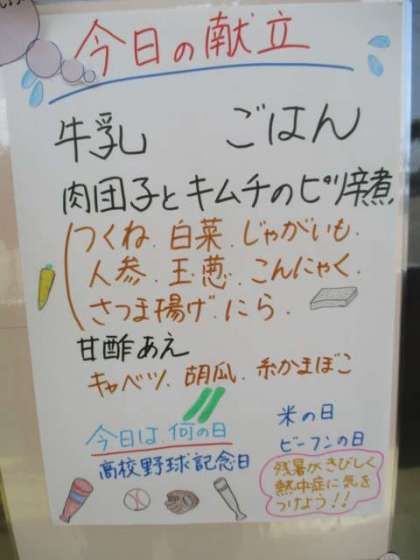 今日の献立
牛乳　ごはん
肉団子とキムチのピリ辛煮
つくね．白菜．じゃがいも．
人参．玉葱．こんにゃく．
さつま揚げ．にら．
甘酢あえ
キャベツ．胡瓜．糸かまぼこ
今日は何の日
高校野球記念日
米の日
ビーフンの日
残暑がきびしく
熱中症に気を
つけよう!!